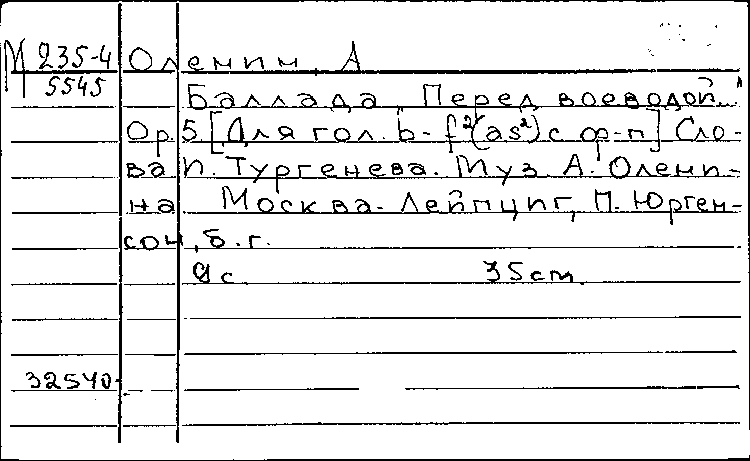 М 235-4 Оленин, А
5545
Баллада „Перед воеводой..."
Op. 5 [Для гол. b-f²(as²) с ф-п] Сло-
ва И. Тургенева. Муз. А. Олени-
на Москва-Лейпциг, П. Юрген-
сон, б.г.
9 с. 35 cm.
32540